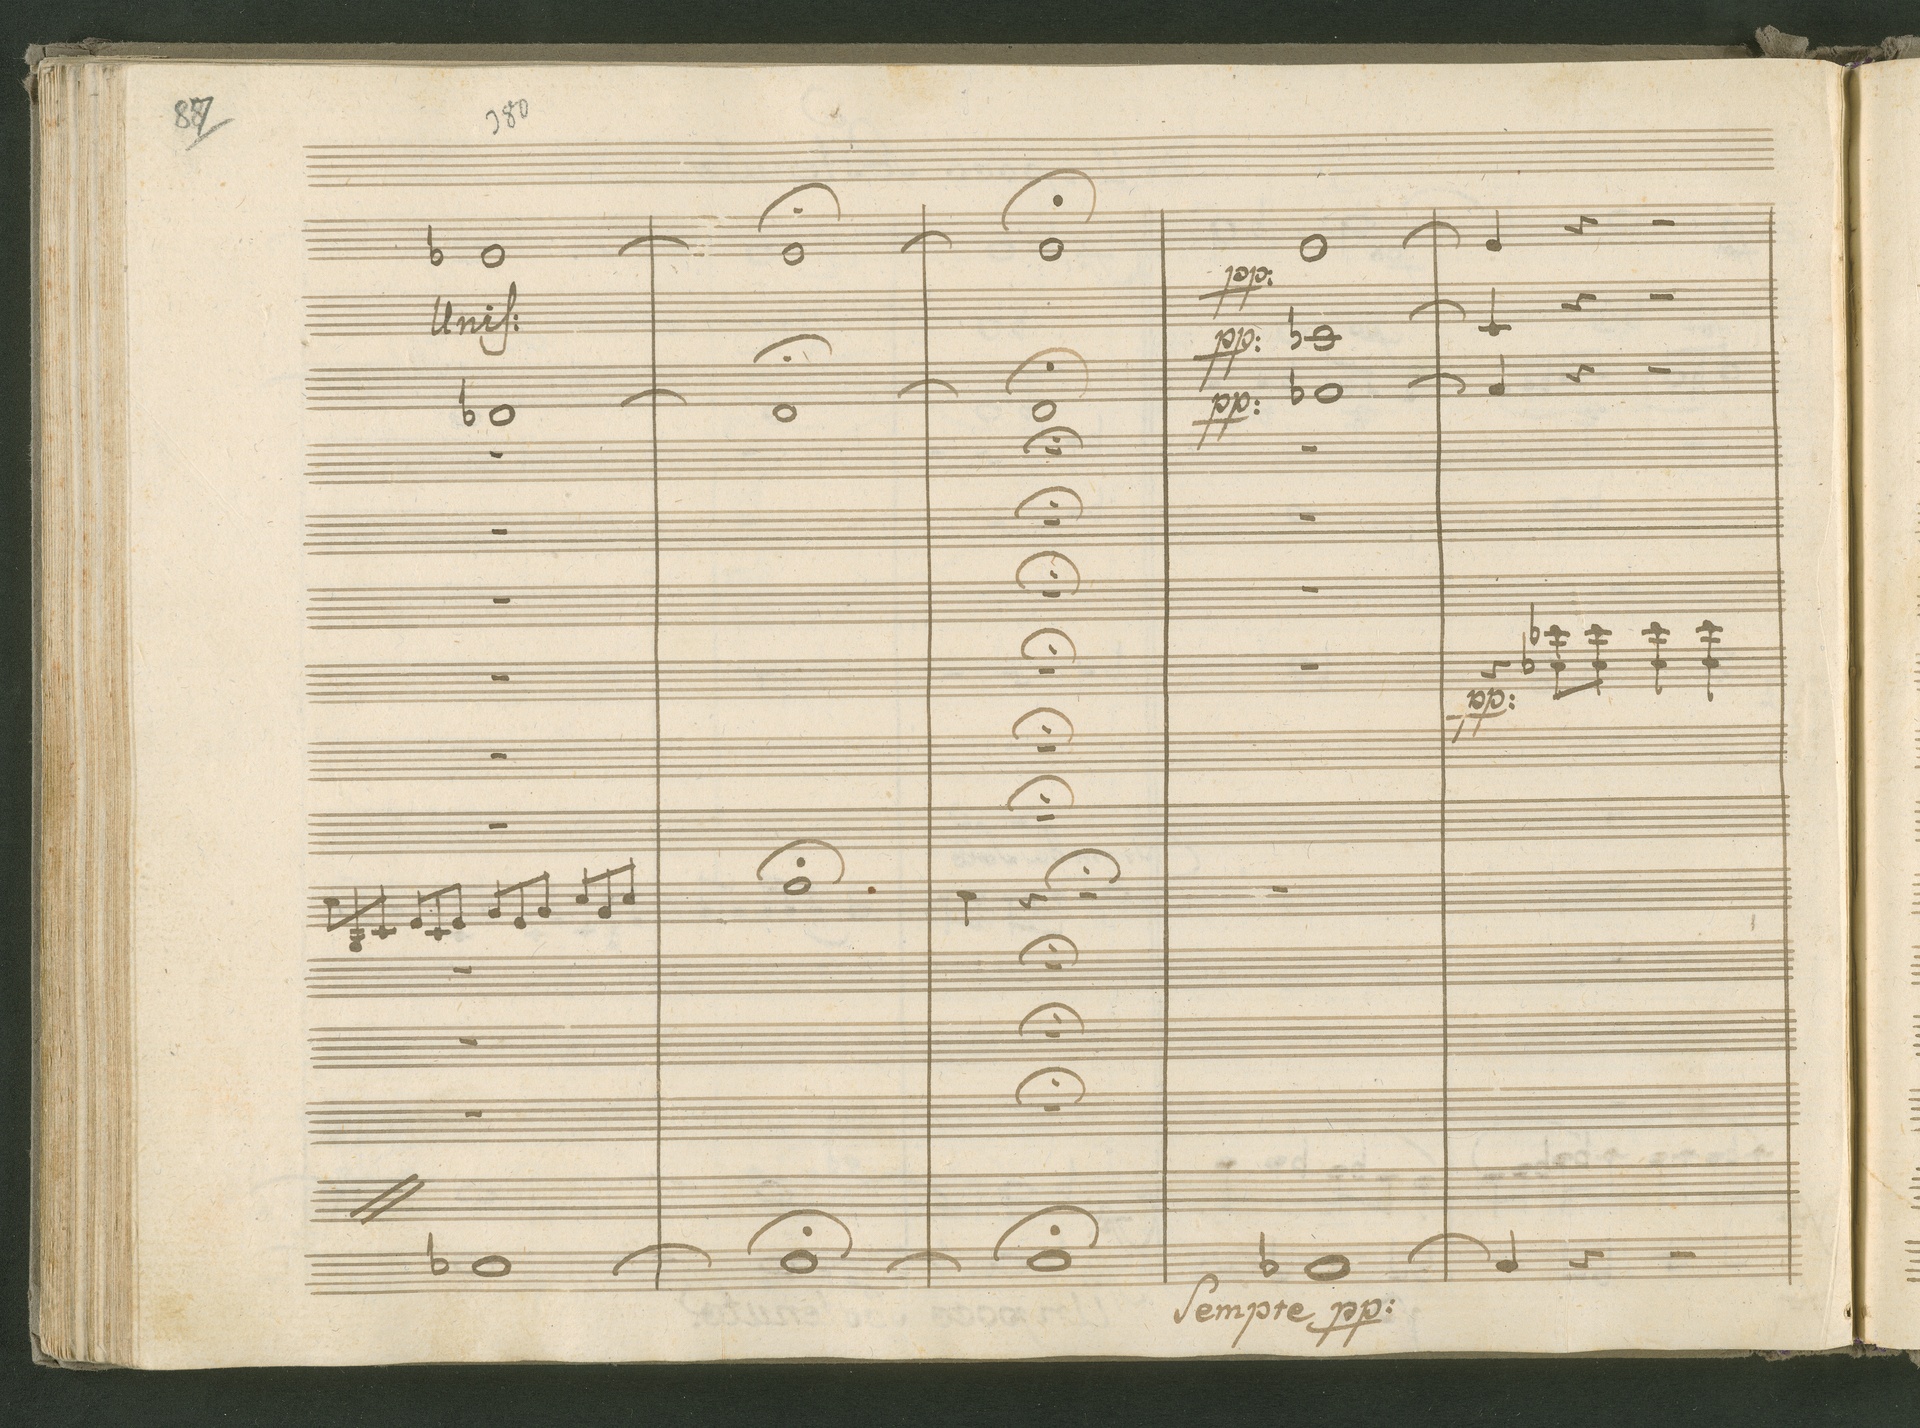 87
380
Unis:
pp:
pp:
pp:
pp:
Sempre pp: